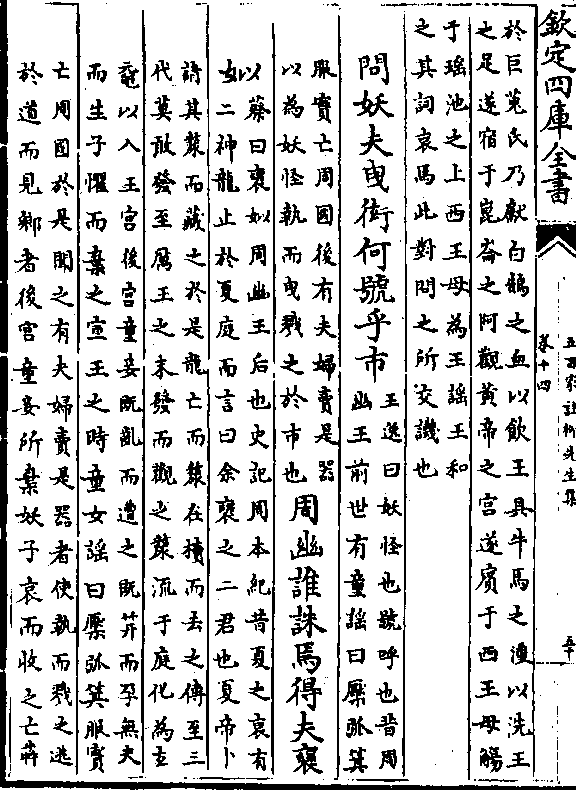 欽定四庫全書
五百家註柳先生集
卷十四
五十
於巨蒐氏乃獻白鵠之血以飲王具牛馬之湩以洗王
之足遂宿于崑崙之阿觀黄帝之宫遂賓于西王母觴
于瑶池之上西王母為王謡王和
之其詞哀焉此對問之所交譏也
問妖夫曳衒何號乎市
王逸曰妖怪也號呼也昔周
幽王前世有童謡曰檿弧箕
服實亡周國後有夫婦賣是器
以為妖怪執而曳戮之於市也
周幽誰誅焉得夫褒
姒
蔡曰褒姒周幽王后也史記周本紀昔夏之衰有
二神龍止於夏庭而言曰余褒之二君也夏帝卜
請其漦而藏之於是龍亡而漦在櫝而去之傳至三
代莫敢發至厲王之末發而觀之漦流于庭化為玄
黿以入王宫後宫童妾既齓而遭之既笄而孕無夫
而生子懼而棄之宣王之時童女謡曰檿弧箕服實
亡周國於是聞之有夫婦賣是器者使執而戮之逃
於道而見鄉者後宫童妾所棄妖子哀而收之亡奔